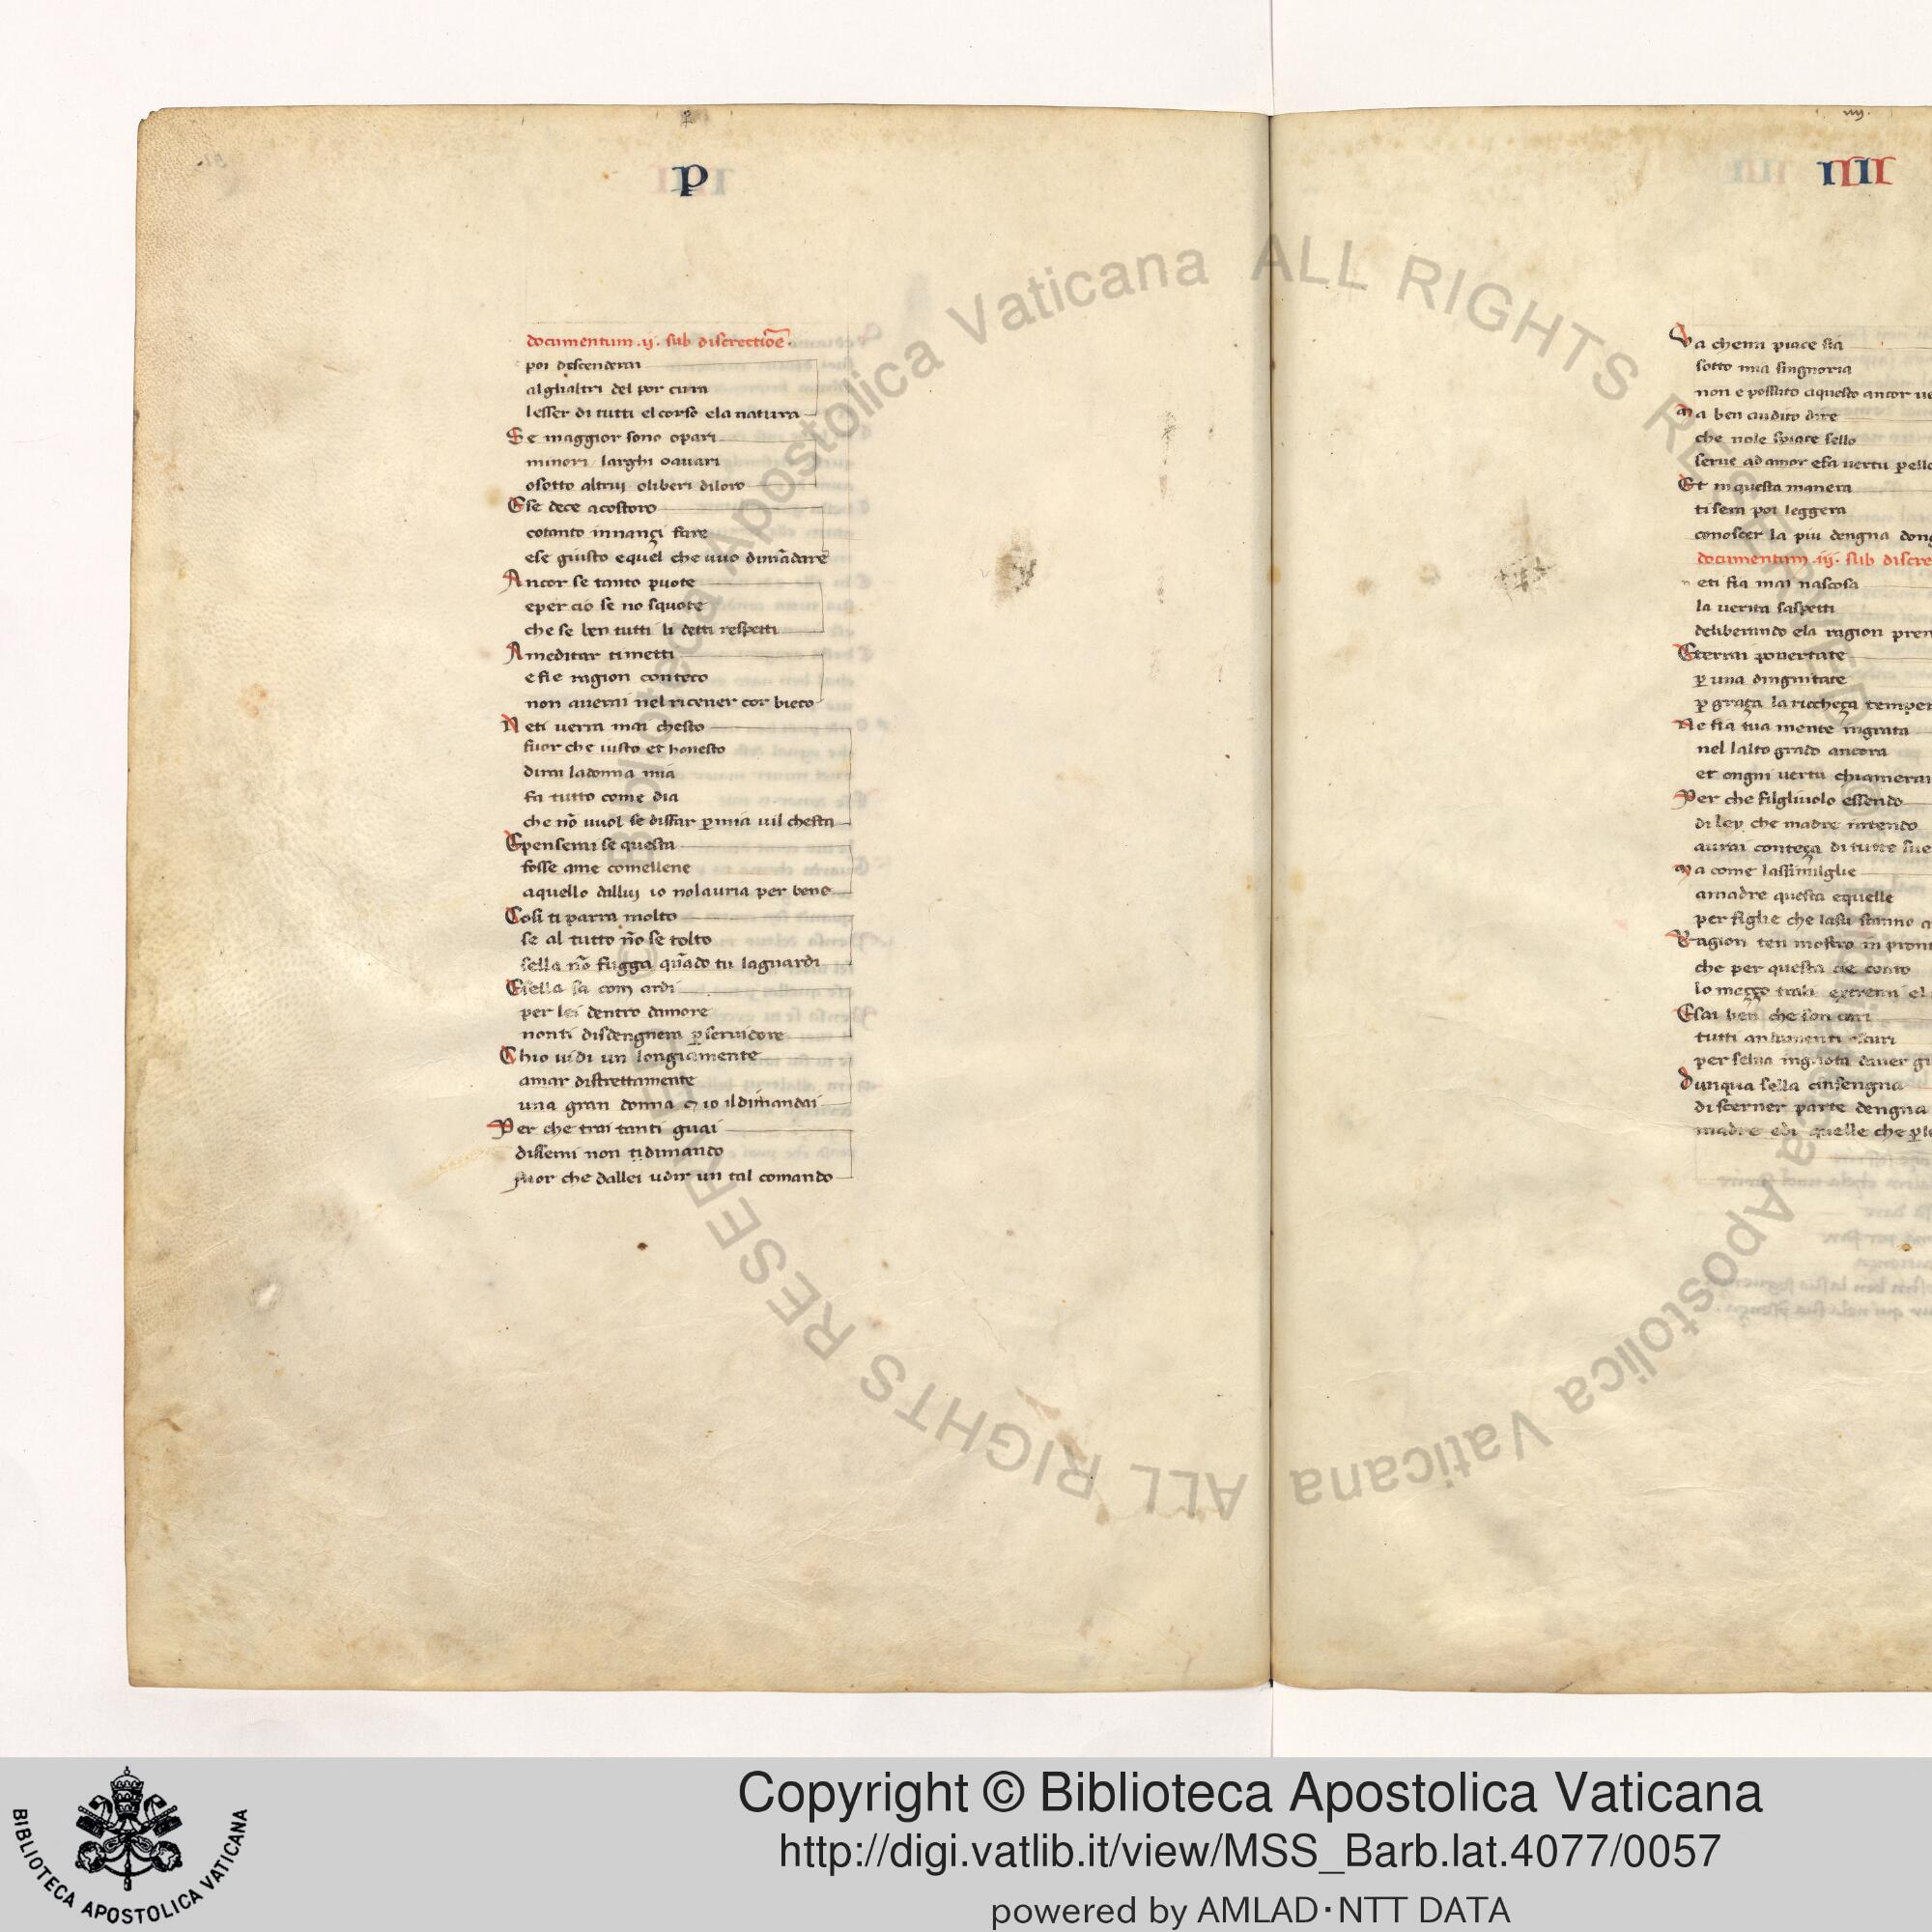 p
documentum .ij. sub discrectiõe.
poi discenderai
algli altri del por cura
lesser di tutti el corso ela natura
Se maggior sono opari
minori larghi oavari
osotto altrui oliberi diloro
Ese dece acostoro
cotanto innançi fare
ese giusto equel che vuo dimãdare
Ancor se tanto puote
eper cio se no squote
che se ben tutti li detti respetti
Ameditar timetti
efie ragion conteco
non averai nel ricever cor bieco
Neti verra mai chesto
fuor che iusto et honesto
dirai ladonna mia
fa tutto come dia
che nõ vuol se disfar p̱ mia vil chesta
Epensera se questa
fosse ame comellene
aquello dilluj io nolauria per bene
Cosi ti parra molto
se al tutto nõ se tolto
sella nõ fugga quãdo tu laguardi
Esella sa com ardi
per lei dentro damore
nonti disdengnera p̱ servidore
Chio vidi un longiamente
amar distrettamente
una gran donna et io il dimandai
Per che trai tanti guai
dissemi non tidimando
fuor che dallei udir un tal comando
IIII
Va chemi piace sia
sotto mia singnoria
non e possuto aquesto ancor
Ma ben audito dire
che nole spiace sello
serve ad amor efa vertu
Et in questa manera
ti sera poi leggera
conoscer la piu dengna
documentum .iij. sub
eti fia mai nascosa
la verita saspetti
deliberando ela ragion
Eterrai povertate
p̱ una dingnitate
p̱ graça la riccheça
Ne fia tua mente ingrata
nel lalto grado ancora
et ongni vertu
Per che filgliuolo essendo
di ley che madre intendo
aurai conteça di tutte
Ma come lassimilglie
amadre questa equelle
per fighe che lasu stanno
Ragion ten mostro in
che per questa cie conto
lo meço trali extremi
Esai ben che son cari
tutti andamenti scuri
per selva ingnota daver
Dunqua sella cinsengna
discerner parte dengna
madre edi quelle che
© Biblioteca Apostolica Vaticana ALL RIGHTS RESERVED © Biblioteca Apostolica Vaticana ALL RIGHTS RESERVED
BIBLIOTECA APOSTOLICA VATICANA
Copyright © Biblioteca Apostolica Vaticana
http://digi.vatlib.it/view/MSS_Barb.lat.4077/0057
powered by AMLAD·NTT DATA